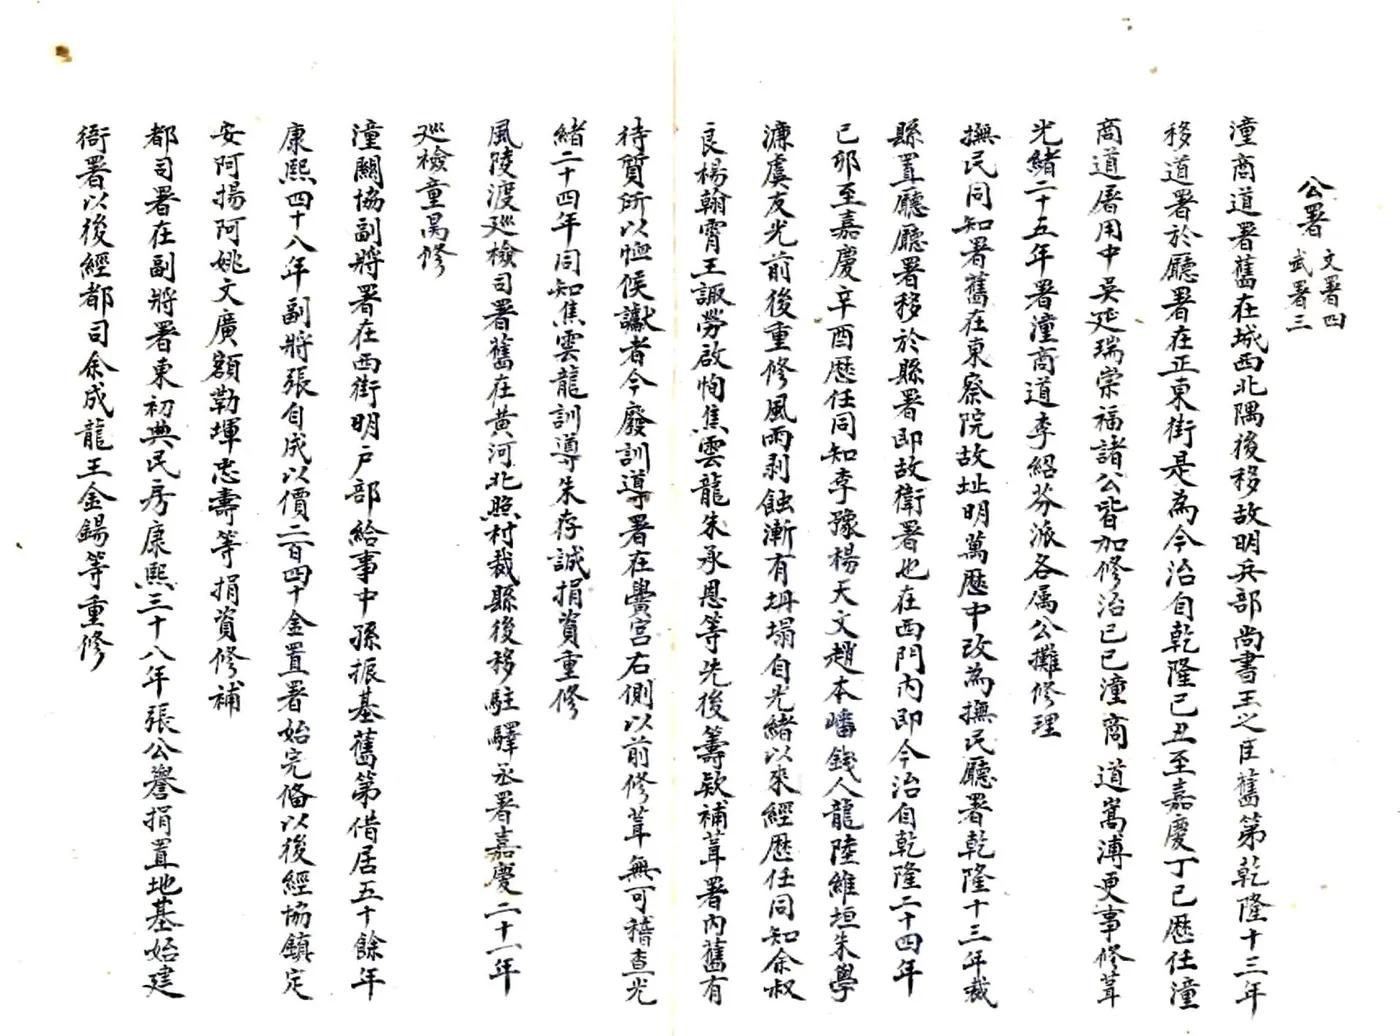 公署 文署四 武署三
潼商道署舊在城西北隅後移故明兵部尚書王之臣舊第乾隆十三年
移道署於廳署在正東街是為今治自乾隆己丑至嘉慶丁巳歷任潼
商道屠用中吳延瑞崇福諸公皆加修治己巳潼商道嵩溥更事修葺
光緒二十五年署潼商道李紹芬派各属公攤修理
撫民同知署舊在東察院故址明萬歷中改為撫民廳署乾隆十三年裁
縣置廳廳署移於縣署即故衛署也在西門内即今治自乾隆二十四年
己卯至嘉慶辛酉歷任同知李豫楊天文趙本嶓錢人龍陸維垣朱學
濂虞友光前後重修風雨剥蝕漸有坍塌自光緒以來經歷任同知余叔
良楊翰霄王諏勞啟恂焦雲龍朱承恩等先後籌欵補葺署内舊有
待質所以恤候讞者今廢訓導署在黌宫右側以前修葺無可稽查光
緒二十四年同知焦雲龍訓導朱存誠捐資重修
風陵渡廵檢司署舊在黄河北照村裁縣後移駐驛丞署嘉慶二十一年
廵檢童昺修
潼關協副將署在西街明戶部給事中孫振基舊第借居五十餘年
康熙四十八年副將張自成以價二百四十金置署始完俻以後經協鎮定
安阿揚阿姚文廣額勒渾忠壽等捐資修補
都司署在副將署東初典民房康熙三十八年張公譽捐置地基始建
衙署以後經都司余成龍王金錫等重修